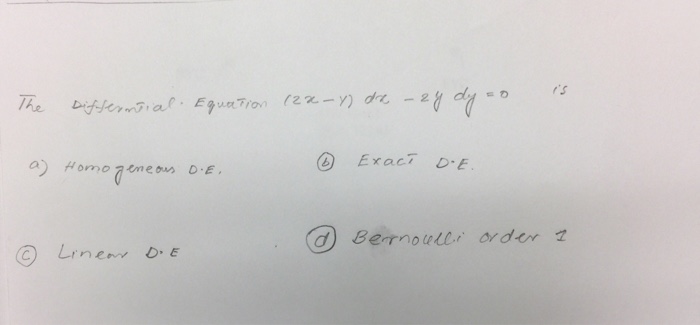 The Differential Equation (2x-y) dx - 2y dy = 0 is
a) Homogeneous D.E. (b) Exact D.E.
(c) Linear D.E (d) Bernoulli order 1